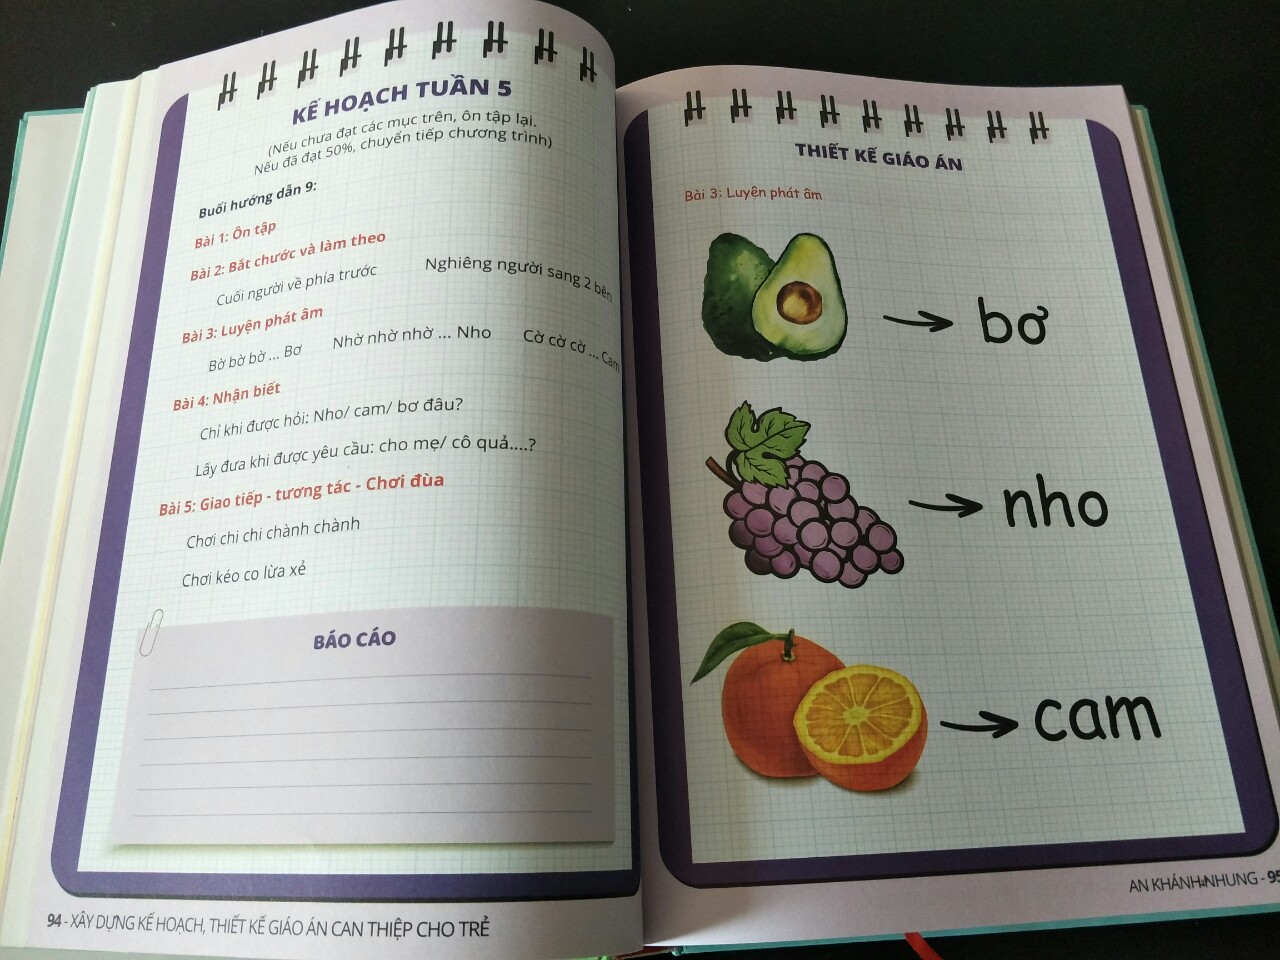 KẾ HOẠCH TUẦN 5
(Nếu chưa đạt các mục trên, ôn tập lại.
Nếu đã đạt 50%, chuyển tiếp chương trình)
Buổi hướng dẫn 9:
Bài 1: Ôn tập
Bài 2: Bắt chước và làm theo
Cuối người về phía trước Nghiêng người sang 2 bên
Bài 3: Luyện phát âm
Bờ bờ bờ ... Bơ Nhờ nhờ nhờ ... Nho Cờ cờ cờ ... Cam
Bài 4: Nhận biết
Chỉ khi được hỏi: Nho/ cam/ bơ đâu?
Lấy đưa khi được yêu cầu: cho mẹ/ cô quả....?
Bài 5: Giao tiếp - tương tác - Chơi đùa
Chơi chi chi chành chành
Chơi kéo co lừa xẻ
BÁO CÁO
94 - XÂY DỰNG KẾ HOẠCH, THIẾT KẾ GIÁO ÁN CAN THIỆP CHO TRẺ
THIẾT KẾ GIÁO ÁN
Bài 3: Luyện phát âm
bơ
nho
cam
AN KHÁNH NHUNG - 95